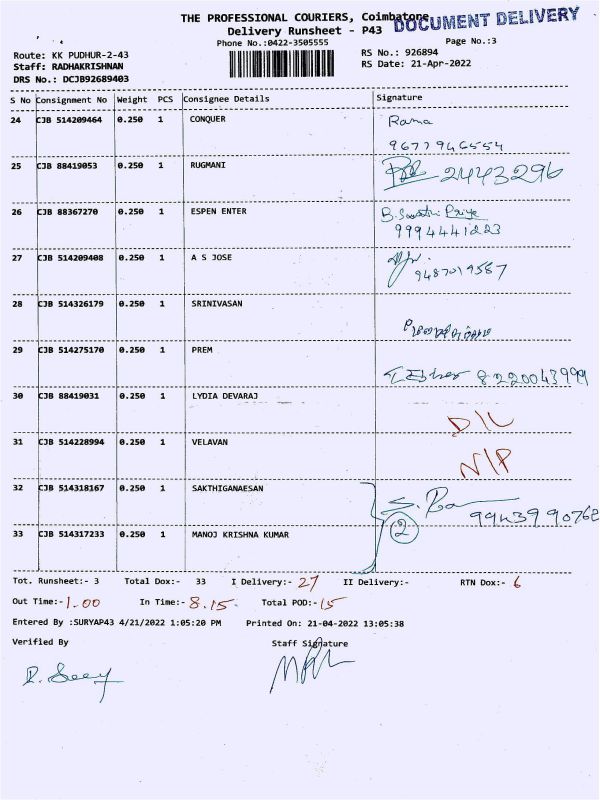 THE PROFESSIONAL COURIERS, Coimbatone
DOCUMENT DELIVERY
Delivery Runsheet - P43
Phone No.:0422-3505555
Page No.:3
Route: KK PUDHUR-2-43
RS No.: 926894
Staff: RADHAKRISHNAN
RS Date: 21-Apr-2022
DRS No.: DCJB92689403
S No Consignment No Weight PCS Consignee Details Signature
24 CJB 514209464 0.250 1 CONQUER Rama
9677946554
25 CJB 88419053 0.250 1 RUGMANI 2443296
26 CJB 88367270 0.250 1 ESPEN ENTER B. Priya
9994441223
27 CJB 514209408 0.250 1 A S JOSE
9487019567
28 CJB 514326179 0.250 1 SRINIVASAN
29 CJB 514275170 0.250 1 PREM 8220043999
30 CJB 88419031 0.250 1 LYDIA DEVARAJ D/L
31 CJB 514228994 0.250 1 VELAVAN N/P
32 CJB 514318167 0.250 1 SAKTHIGANAESAN
9943990762
33 CJB 514317233 0.250 1 MANOJ KRISHNA KUMAR 2
Tot. Runsheet:- 3 Total Dox:- 33 I Delivery:- 27 II Delivery:- RTN Dox:- 6
Out Time:- 1.00 In Time:- 8.15 Total POD:- 15
Entered By :SURYAP43 4/21/2022 1:05:20 PM Printed On: 21-04-2022 13:05:38
Verified By Staff Signature